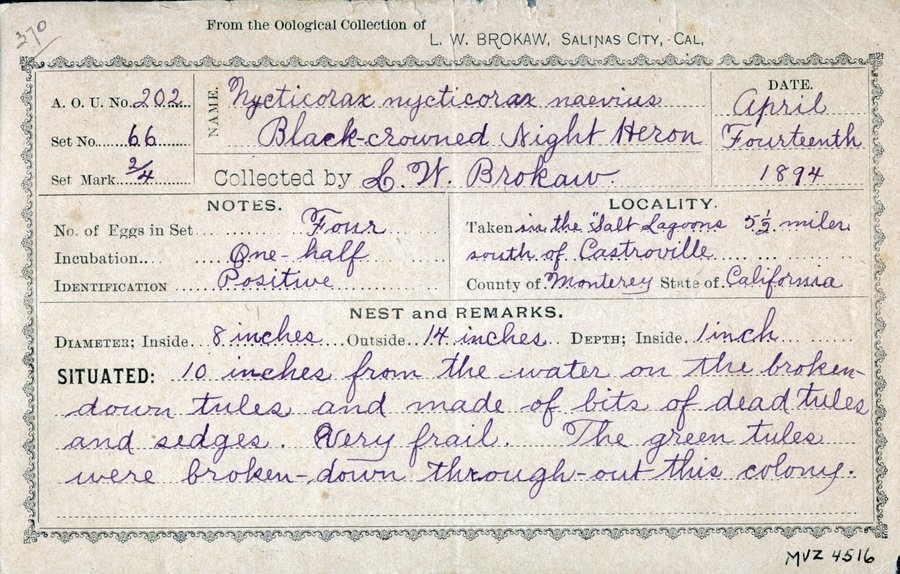 370
From the Oological Collection of
L. W. BROKAW, SALINAS CITY, CAL,
A. O. U. No. 202
Set No. 66
Set Mark 2/4
NAME.
Nycticorax nycticorax naevius
Black-crowned Night Heron
Collected by L. W. Brokaw.
DATE.
April
Fourteenth
1894
NOTES.
No. of Eggs in Set Four
Incubation.. One-half
IDENTIFICATION Positive
LOCALITY.
Taken in the "Salt Lagoons 5½ miles
south of Castroville
County of Monterey State of California
NEST and REMARKS.
DIAMETER; Inside. 8 inches Outside 14 inches DEPTH; Inside. 1 inch
SITUATED: 10 inches from the water on the broken-
down tules and made of bits of dead tules
and sedges. Very frail. The green tules
were broken-down through-out this colony.
MVZ 4516